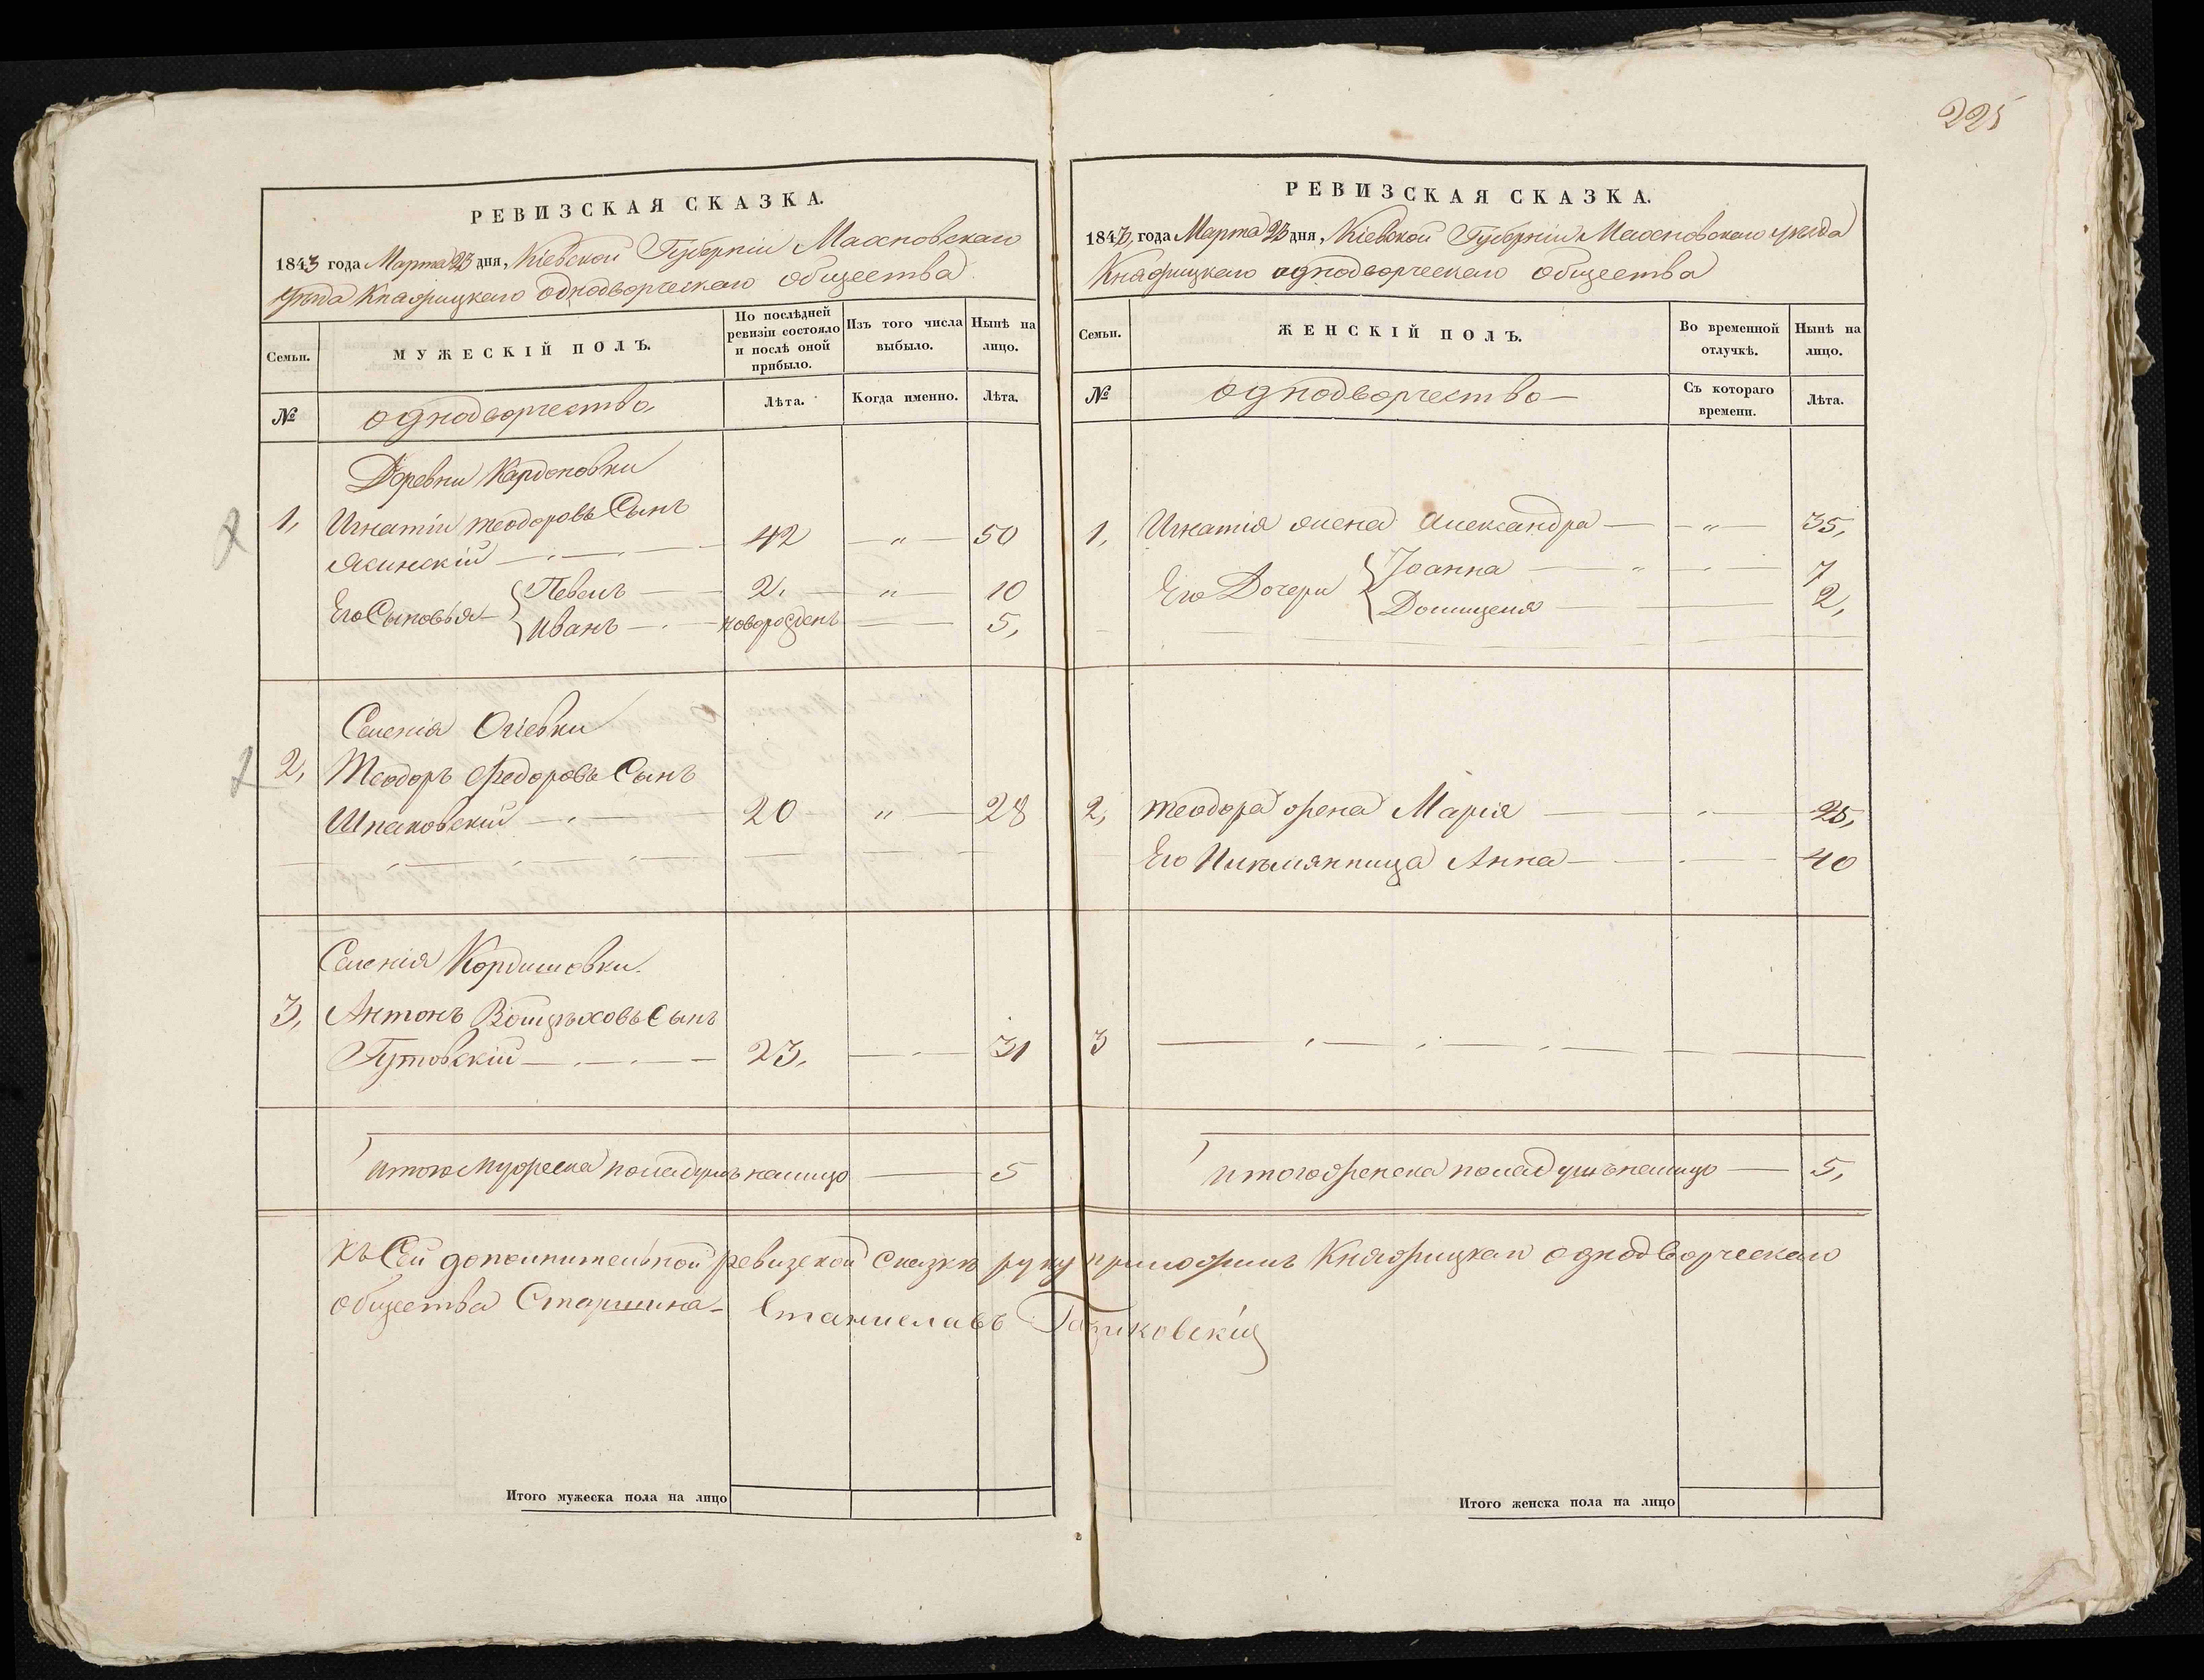 225
РЕВИЗСКАЯ СКАЗКА.
1843 года Марта 23 дня, Кіевской Губерніи Махновскаго
уѣзда Княжрицкаго однодворческаго общества
Семьи.
МУЖЕСКІЙ ПОЛЪ.
По послѣдней ревизіи состояло и послѣ оной прибыло.
Изъ того числа выбыло.
Нынѣ на лицо.
№
однодворчество
Лѣта.
Когда именно.
Лѣта.
Деревни
1, Игнатій теодоровъ Сынъ
Ясинскій 42 " 50
Его Сыновья Павелъ 2, " 10
Иванъ новорожденъ 5,
Селенія
2, Теодоръ Федоровъ Сынъ
Шпаковскій 20 " 28
Селенія Кордишовки.
3, Антонъ Войцѣховъ Сынъ
Гутовскій 23, 31
итого мужеска пола душъ налицо 5
Къ Сей дополнительной ревизской сказкѣ руку приложилъ Княжрицкаго однодворческаго
общества Старшина Станиславъ
Итого мужеска пола на лицо
РЕВИЗСКАЯ СКАЗКА.
1843, года Марта 23 дня, Кіевской Губерніи Махновскаго уѣзда
Княжрицкаго однодворческаго общества
Семьи.
ЖЕНСКІЙ ПОЛЪ.
Во временной отлучкѣ.
Нынѣ на лицо.
№
однодворчество
Съ котораго времени.
Лѣта.
1, Игнатія жена Александра " 35,
Его Дочери Іоанна " 7
Домицеля 2,
2, теодора жена Марія 25,
Его Анна 40
3
итого женска пола душъ налицо 5,
Итого женска пола на лицо